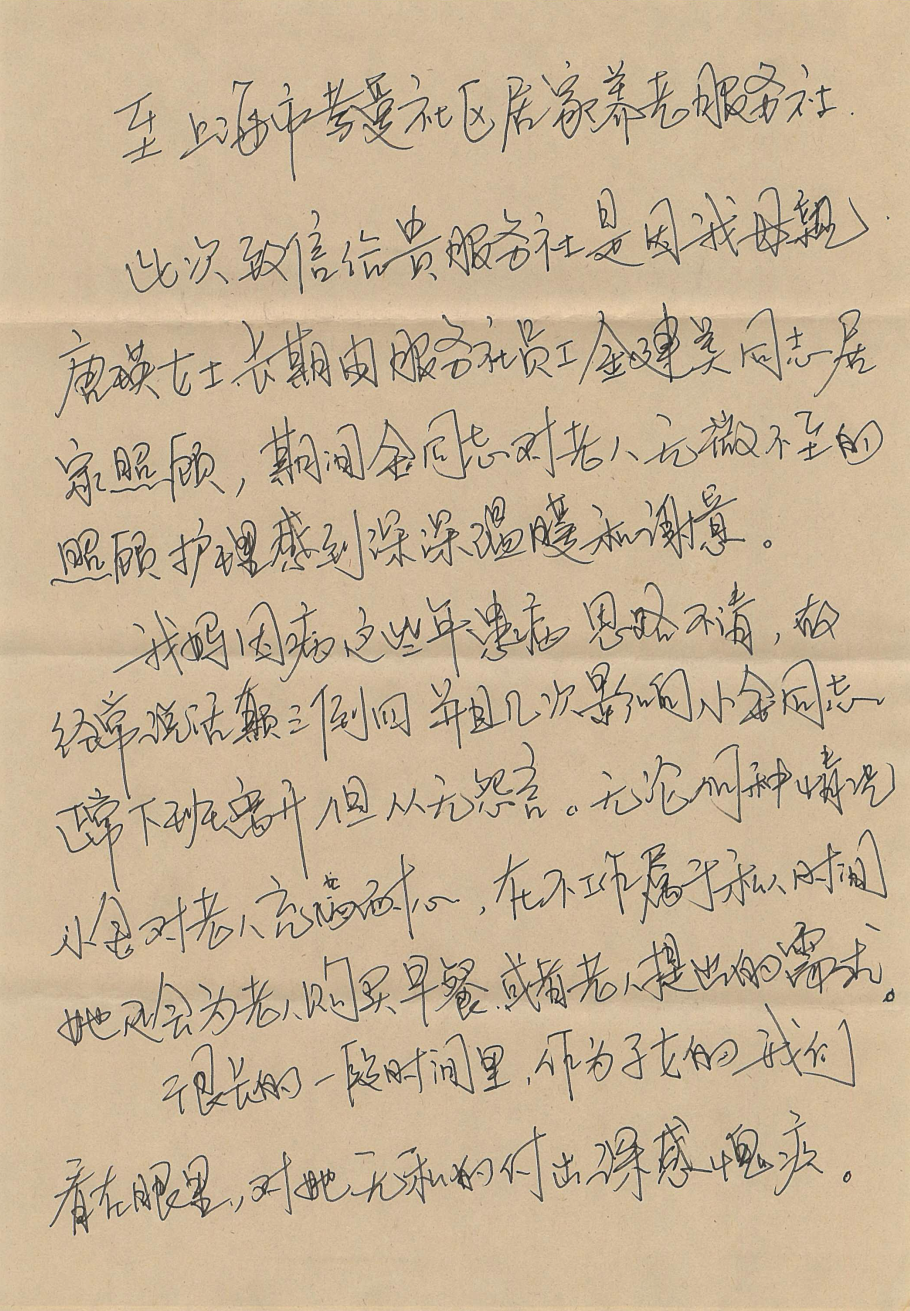 至上海市普爱社区居家养老服务社.
此次致信给贵服务社是因我母亲
唐瑛女士长期由服务社员工金建英同志居
家照顾，期间金同志对老人无微不至的
照顾护理感到深深温暖和谢意。
我妈因病这些年患病 思路不清，故
经常说话颠三倒四 并且几次影响小金同志
正常下班离开 但从无怨言。无论何种情况
小金对老人充满耐心，在不工作属于私人时间
她还会为老人购买早餐，或者老人提出的需求。
很长的一段时间里，作为子女的我们
看在眼里，对她无私的付出深感愧疚。